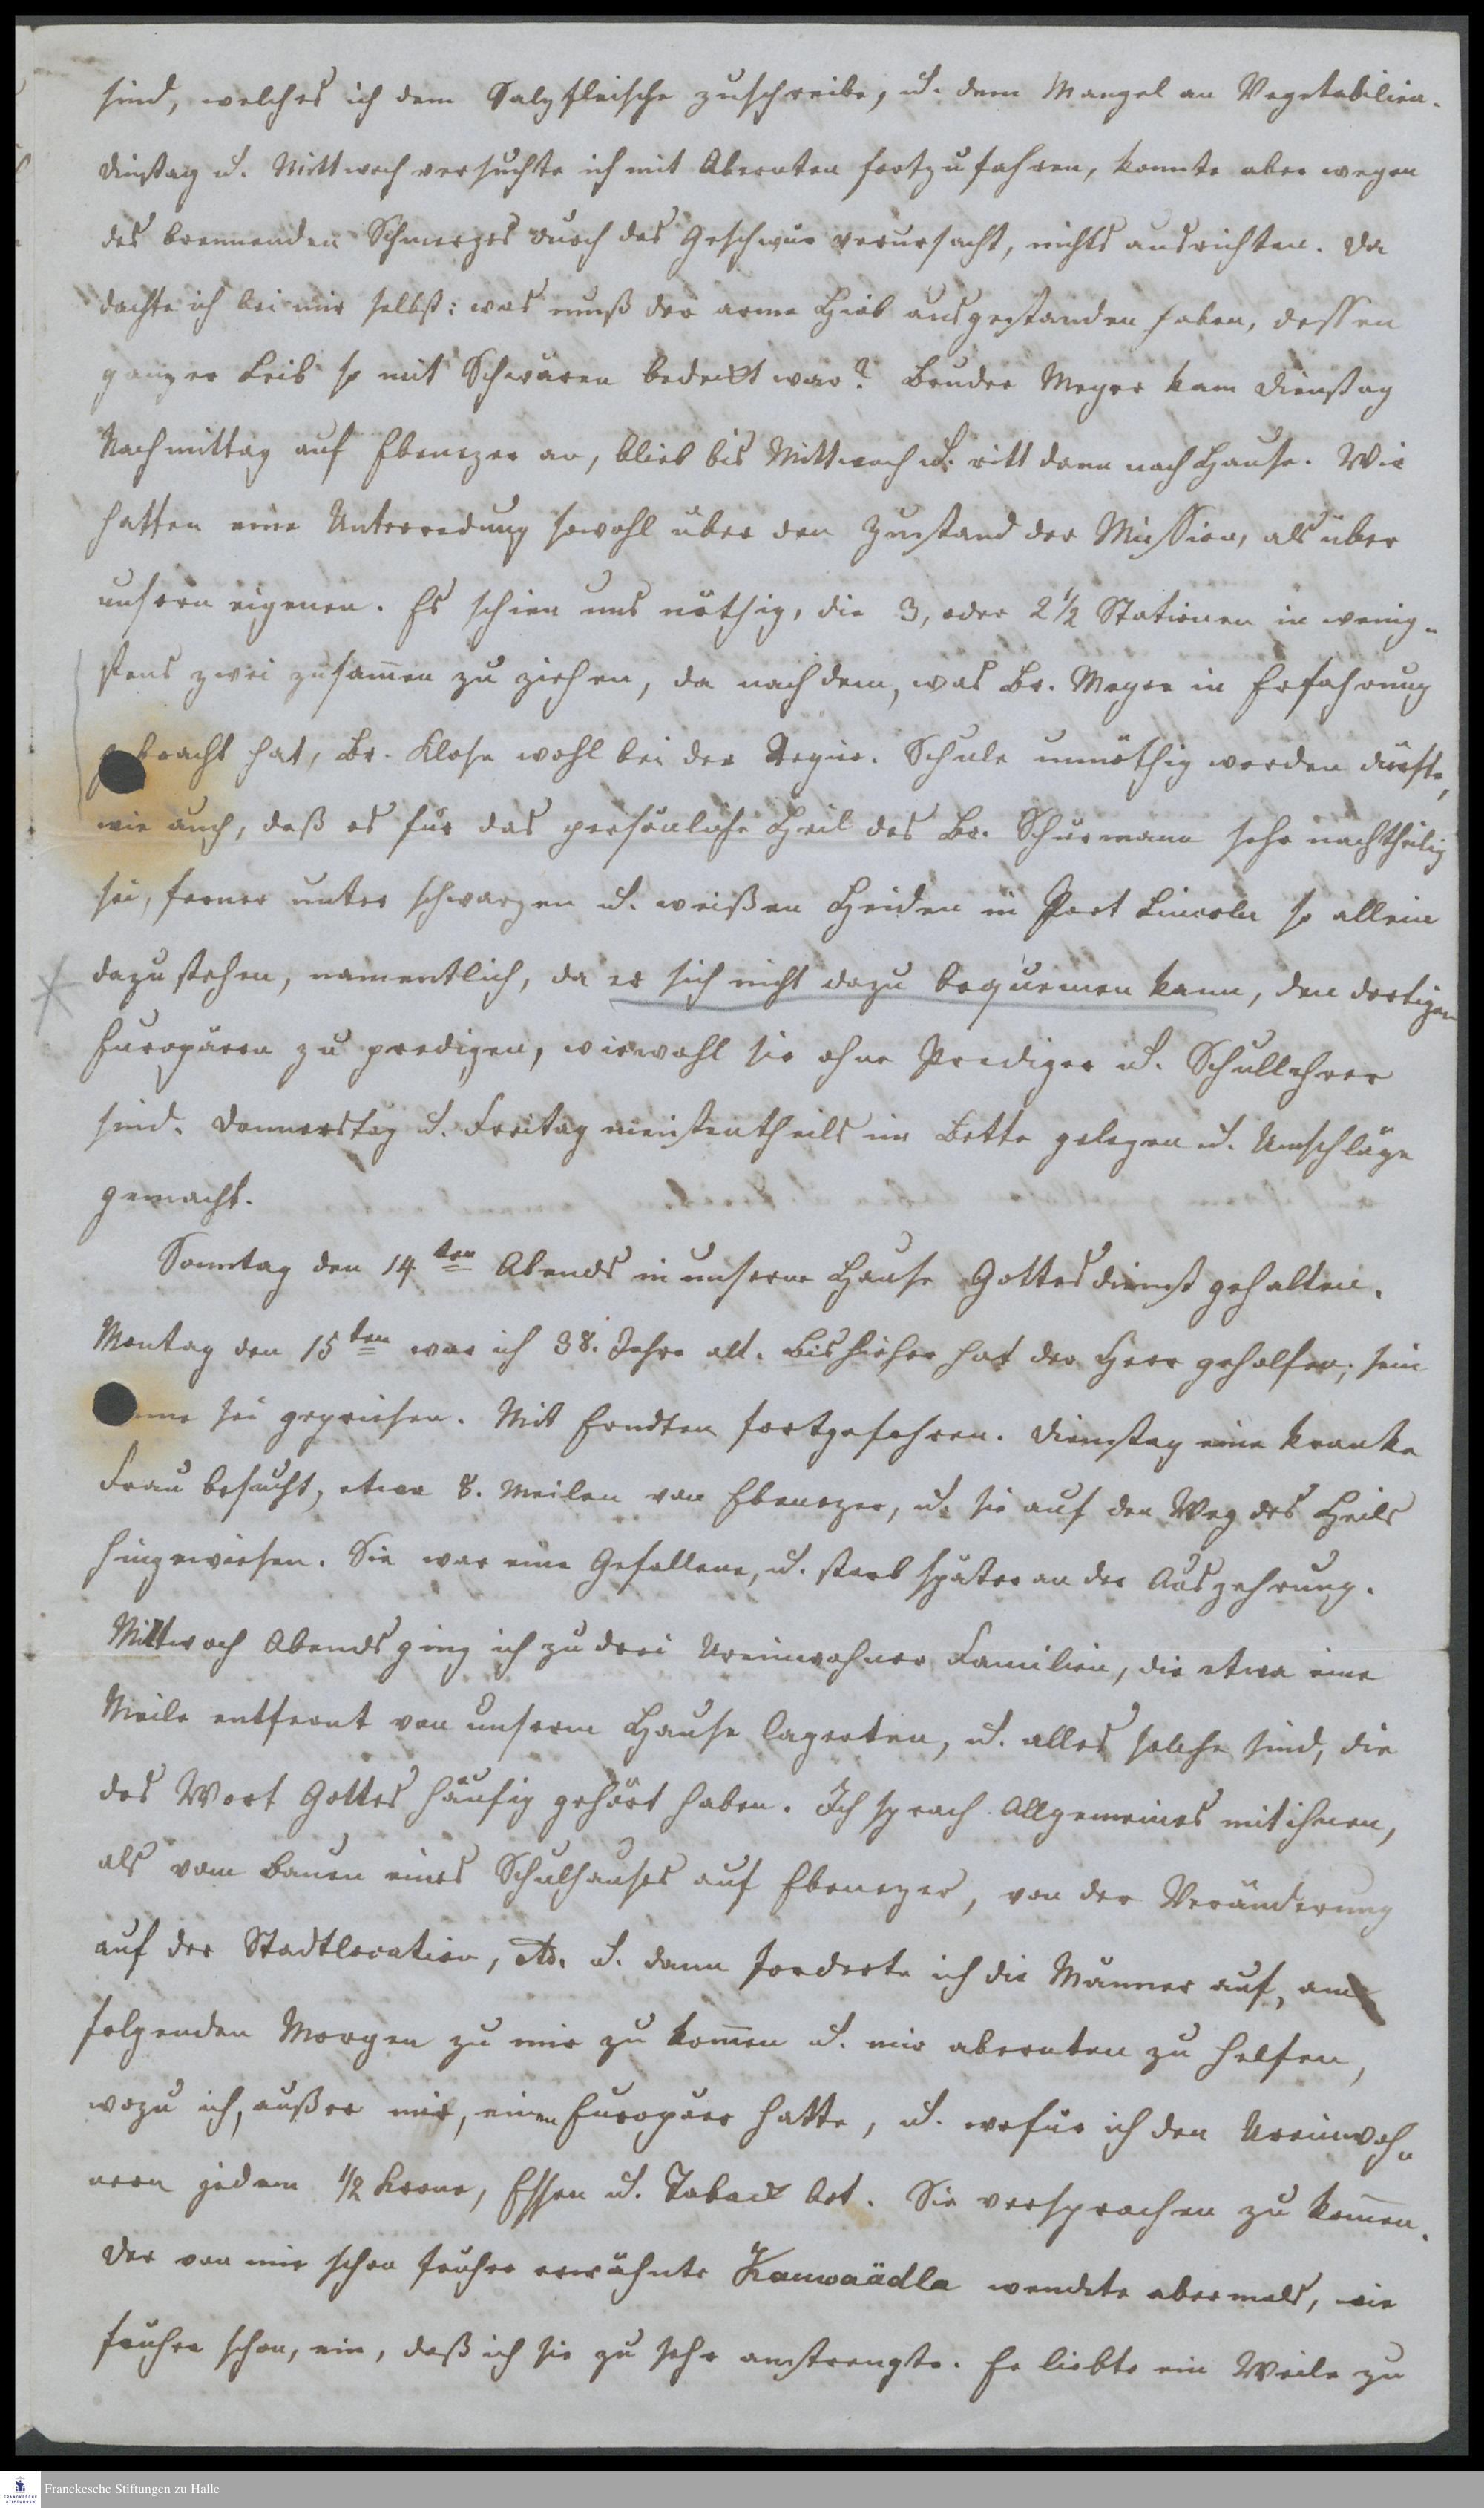 sind, welches ich dem Salzfleische zuschreibe, u. dem Mangel an Vegetabilien.
Dinstag u. Mittwoch versuchte ich mit Abernten fortzufahren, konnte aber wegen
des brennenden Schmerzes durch das Geschwür verursacht, nichts ausrichten. Da
dachte ich bei mir selbst: was muß der arme Hiob ausgestanden haben, dessen
ganzer Leib so mit Schwären bedeckt war? Bruder Meyer kam Dienstag
Nachmittag auf Ebenezer an, blieb bis Mittwoch u. ritt dann nach Hause. Wir
hatten eine Unterredung sowohl über den Zustand der Mission, als über
unsern eigenen. Es schien uns nöthig, die 3, oder 2 1/2 Stationen in wenig-
stens zwei zusam̄en zu ziehen, da nach dem, was Br. Meyer in Erfahrung
gebracht hat, Br. Klose wohl bei der Regier. Schule unnöthig werden dürfte,
wie auch, daß es für das persönliche Heil des Br. Schürmann sehr nachtheilig
sei, ferner unter schwarzen u. weißen Heiden in Port Lincoln so allein
dazustehen, namentlich, da er sich nicht dazu bequemen kann, den dortigen
Europäern zu predigen, wiewohl sie ohne Prediger u. Schullehrer
sind. Donnerstag u. Freitag meistentheils im Bette gelegen u. Umschläge
gemacht.
Sonntag den 14ten Abends in unserm Hause Gottesdienst gehalten.
Montag den 15ten war ich 38. Jahre alt. Bis hieher hat der Herr geholfen; sein
ame sei gepriesen. Mit Erndten fortgefahren. Dienstag eine kranke
Frau besucht, etwa 8. Meilen von Ebenezer, u. sie auf den Weg des Heils
hingewiesen. Sie war eine Gefallene, u. starb später an der Auszehrung.
Mittwoch Abends ging ich zu drei Ureinwohner Familien, die etwa eine
Meile entfernt von unserm Hause lagerten, u. alles solche sind, die
das Wort Gottes häufig gehört haben. Ich sprach Allgemeines mit ihnen,
als vom Bauen eines Schulhauses auf Ebenezer, von der Veränderung
auf der Stadtlocation, etc. u. dann forderte ich die Männer auf, am
folgenden Morgen zu mir zu kom̄en u. mir abernten zu helfen,
wozu ich, außer mir, einen Europäer hatte, u. wofür ich den Ureinwoh-
nern jedem 1/2 Krone, Essen u. Taback bot. Sie versprachen zu kom̄en.
Der von mir schon früher erwähnte Kauwaädla wendete abermals, wie
früher schon, ein, daß ich sie zu sehr anstrengte. Er liebte ein Weile zu
Franckesche Stiftungen zu Halle